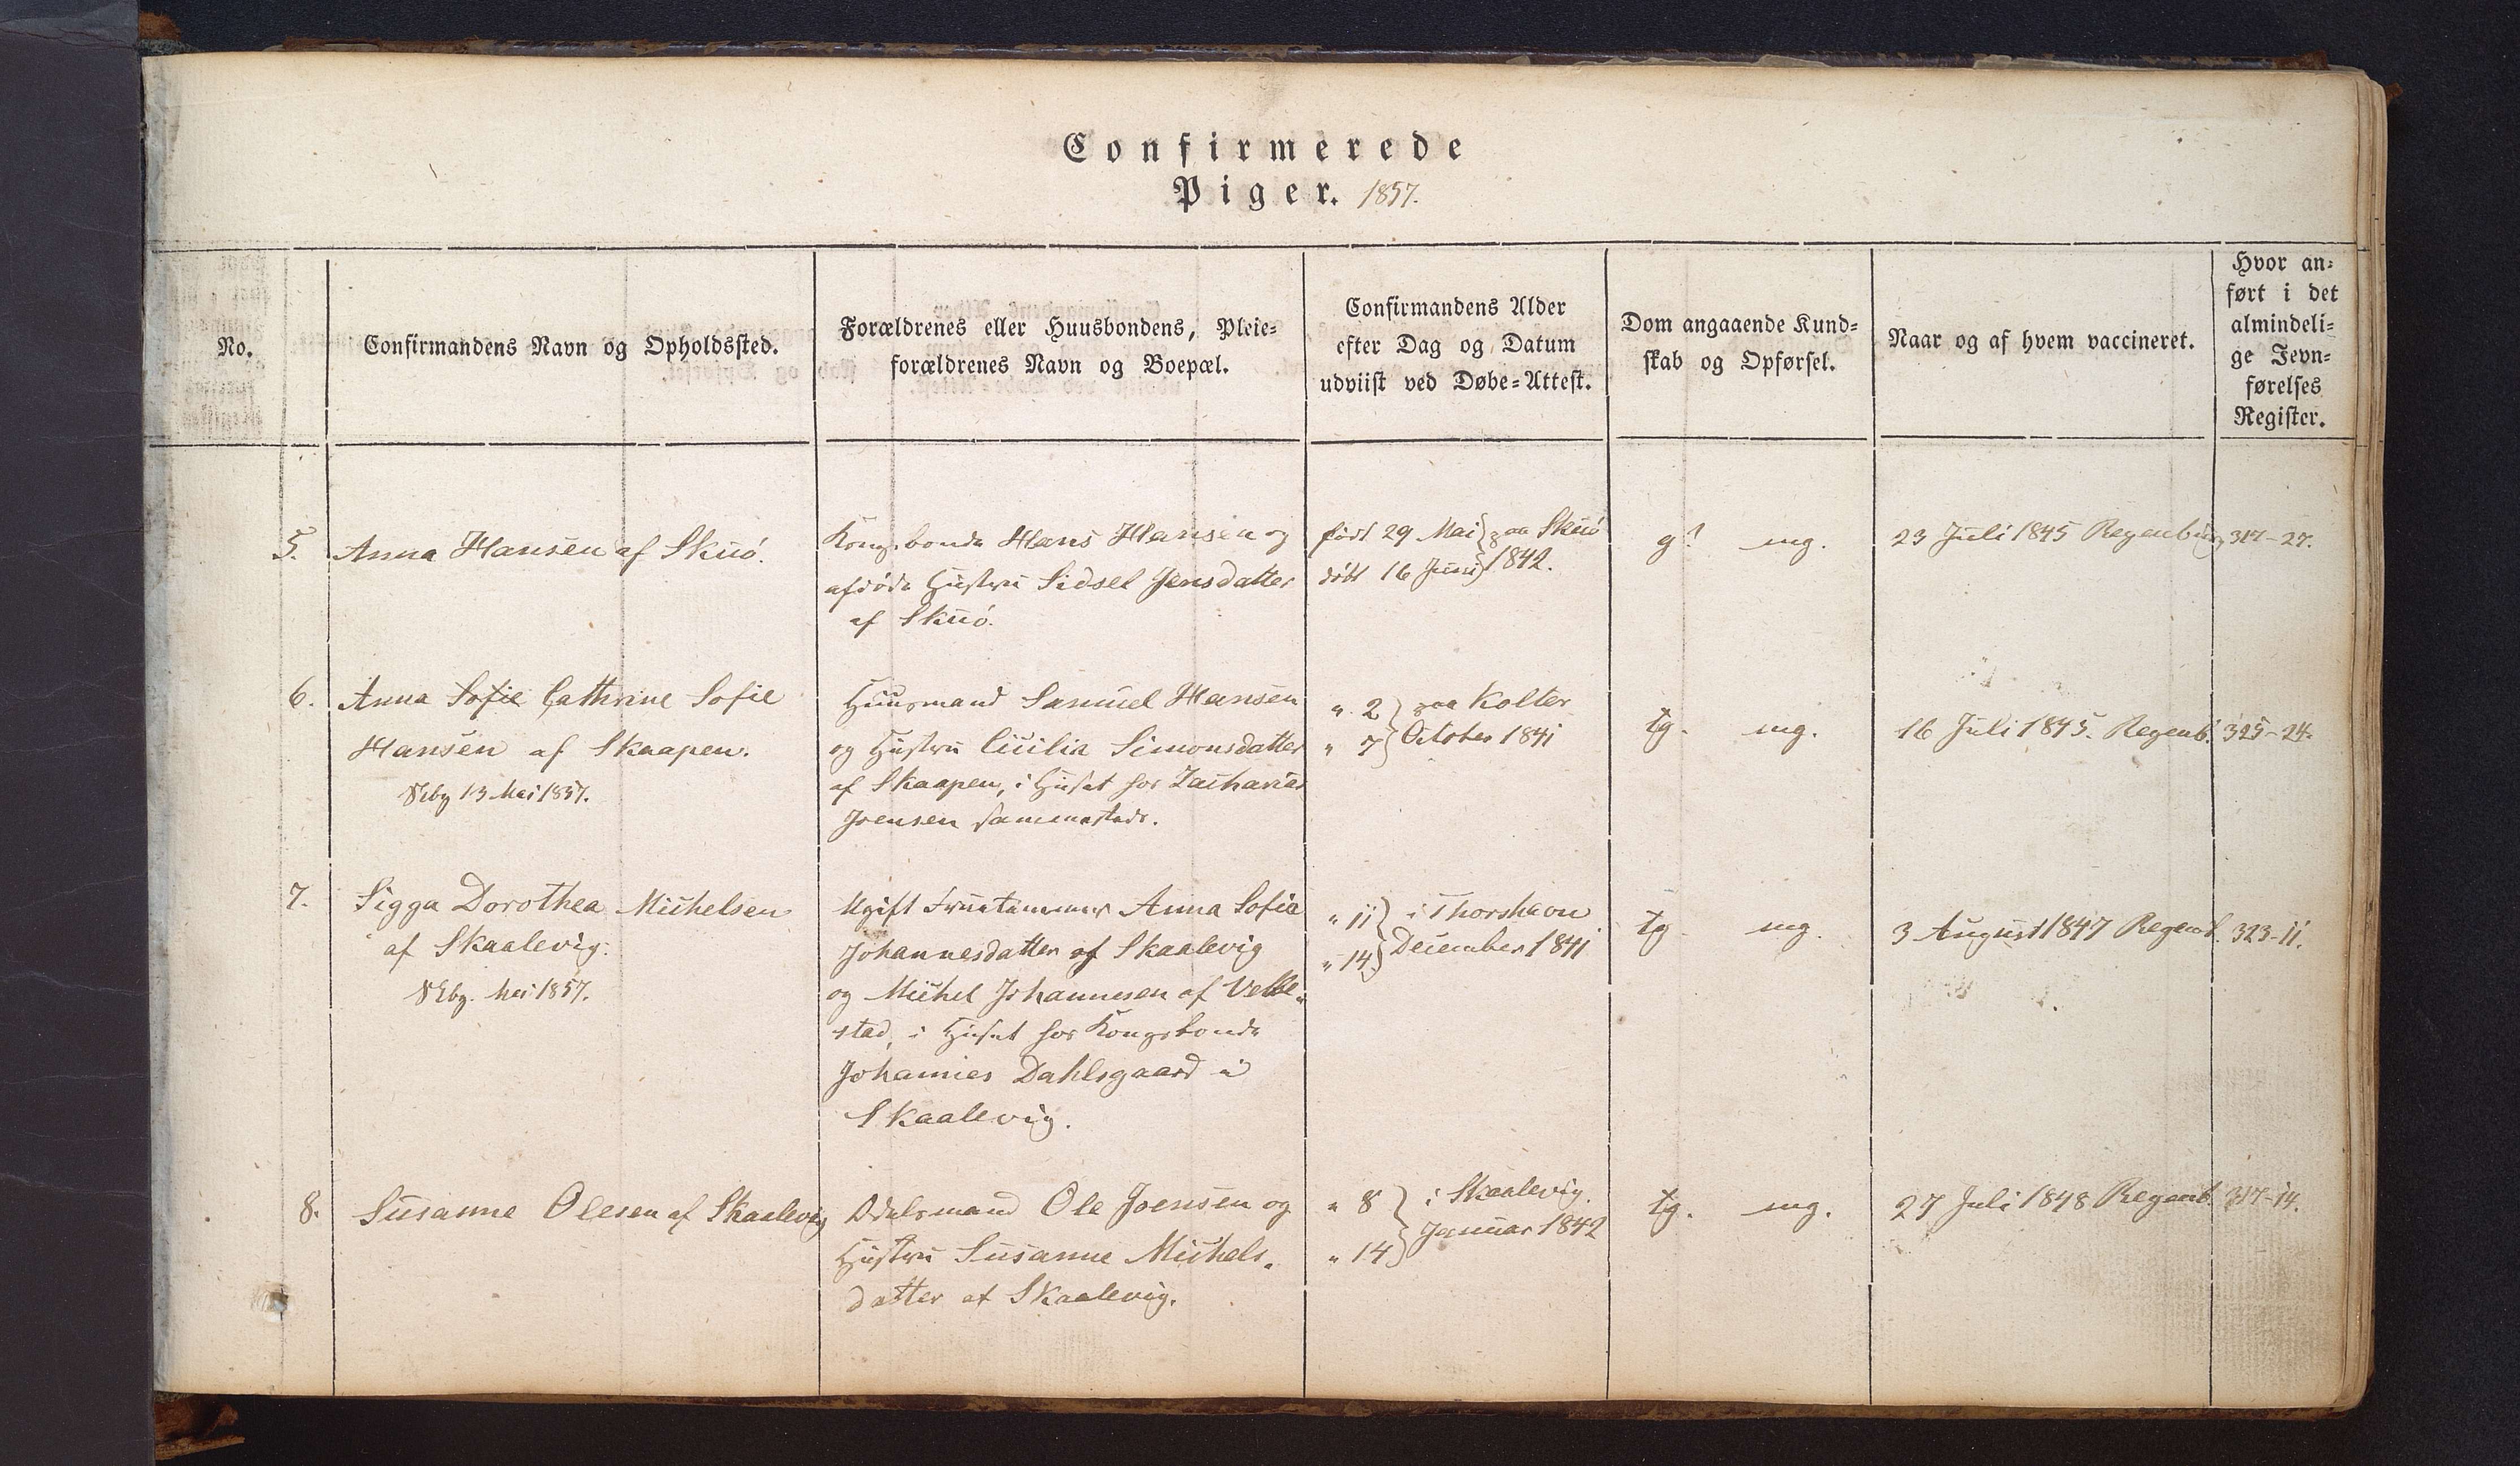 Confirmerede
Piger. 1857.
No.
Confirmandens Navn og Opholdssted.
Forældrenes eller Huusbondens, Pleie-
forældrenes Navn og Boepæl.
Confirmandens Alder
efter Dag og Datum
udviist ved Døbe-Attest.
Dom angaaende Kund-
skab og Opførsel.
Naar og af hvem vaccineret.
Hvor an-
ført i det
almindeli-
ge Jevn-
førelses
Register.
5.
Anna Hansen af Skuö.
Kongsbonde Hans Hansen og
afdöde Hustru Sidsel Jensdatter
af Skuö.
född 29 Mai paa Skuö
döbt 16 Juni 1842.
g? mg.
23 Juli 1845 Regenburg
317-27.
6.
Anna Sofie Cathrine Sofie
Hansen af Skaapen.
13 Mai 1857.
Huusmand Samuel Hansen
og Hustru Cicilia Simonsdatter
af Skaapen, i Huset hos Zacharias
Joensen sammesteds.
" 2 paa Kolter
" 7 October 1841
tg. mg.
16 Juli 1845. Regenb.
325-24.
7.
Sigga Dorothea Michelsen
af Skaalevig.
Mai 1857.
Ugift Fruentimmer Anna Sofie
Johannesdatter af Skaalevig
og Michel Johannesen af Velbe-
stad, i Huset hos Kongsbonde
Johannes Dahlsgaard i
Skaalevig.
" 11 i Thorshavn
" 14 December 1841
tg. mg.
3 August 1847 Regenb.
323-11.
8.
Susanne Olesen af Skaalevig
Odelsmand Ole Joensen og
Hustru Susanne Michels-
datter af Skaalevig.
" 8 i Skaalevig.
" 14 Januar 1842
tg. mg.
27 Juli 1848 Regenb.
317-14.